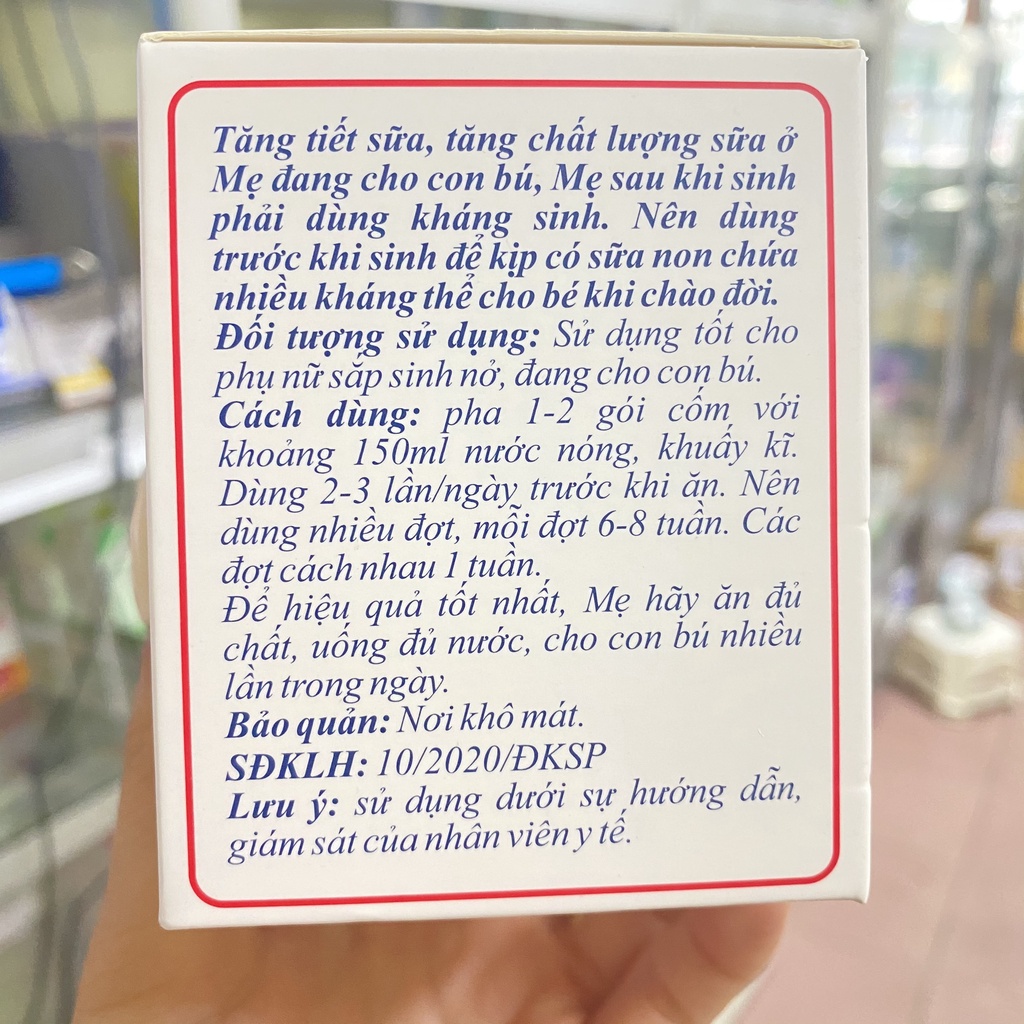 Tăng tiết sữa, tăng chất lượng sữa ở
Mẹ đang cho con bú, Mẹ sau khi sinh
phải dùng kháng sinh. Nên dùng
trước khi sinh để kịp có sữa non chứa
nhiều kháng thể cho bé khi chào đời.
Đối tượng sử dụng: Sử dụng tốt cho
phụ nữ sắp sinh nở, đang cho con bú.
Cách dùng: pha 1-2 gói cốm với
khoảng 150ml nước nóng, khuấy kĩ.
Dùng 2-3 lần/ngày trước khi ăn. Nên
dùng nhiều đợt, mỗi đợt 6-8 tuần. Các
đợt cách nhau 1 tuần.
Để hiệu quả tốt nhất, Mẹ hãy ăn đủ
chất, uống đủ nước, cho con bú nhiều
lần trong ngày.
Bảo quản: Nơi khô mát.
SĐKLH: 10/2020/ĐKSP
Lưu ý: sử dụng dưới sự hướng dẫn,
giám sát của nhân viên y tế.